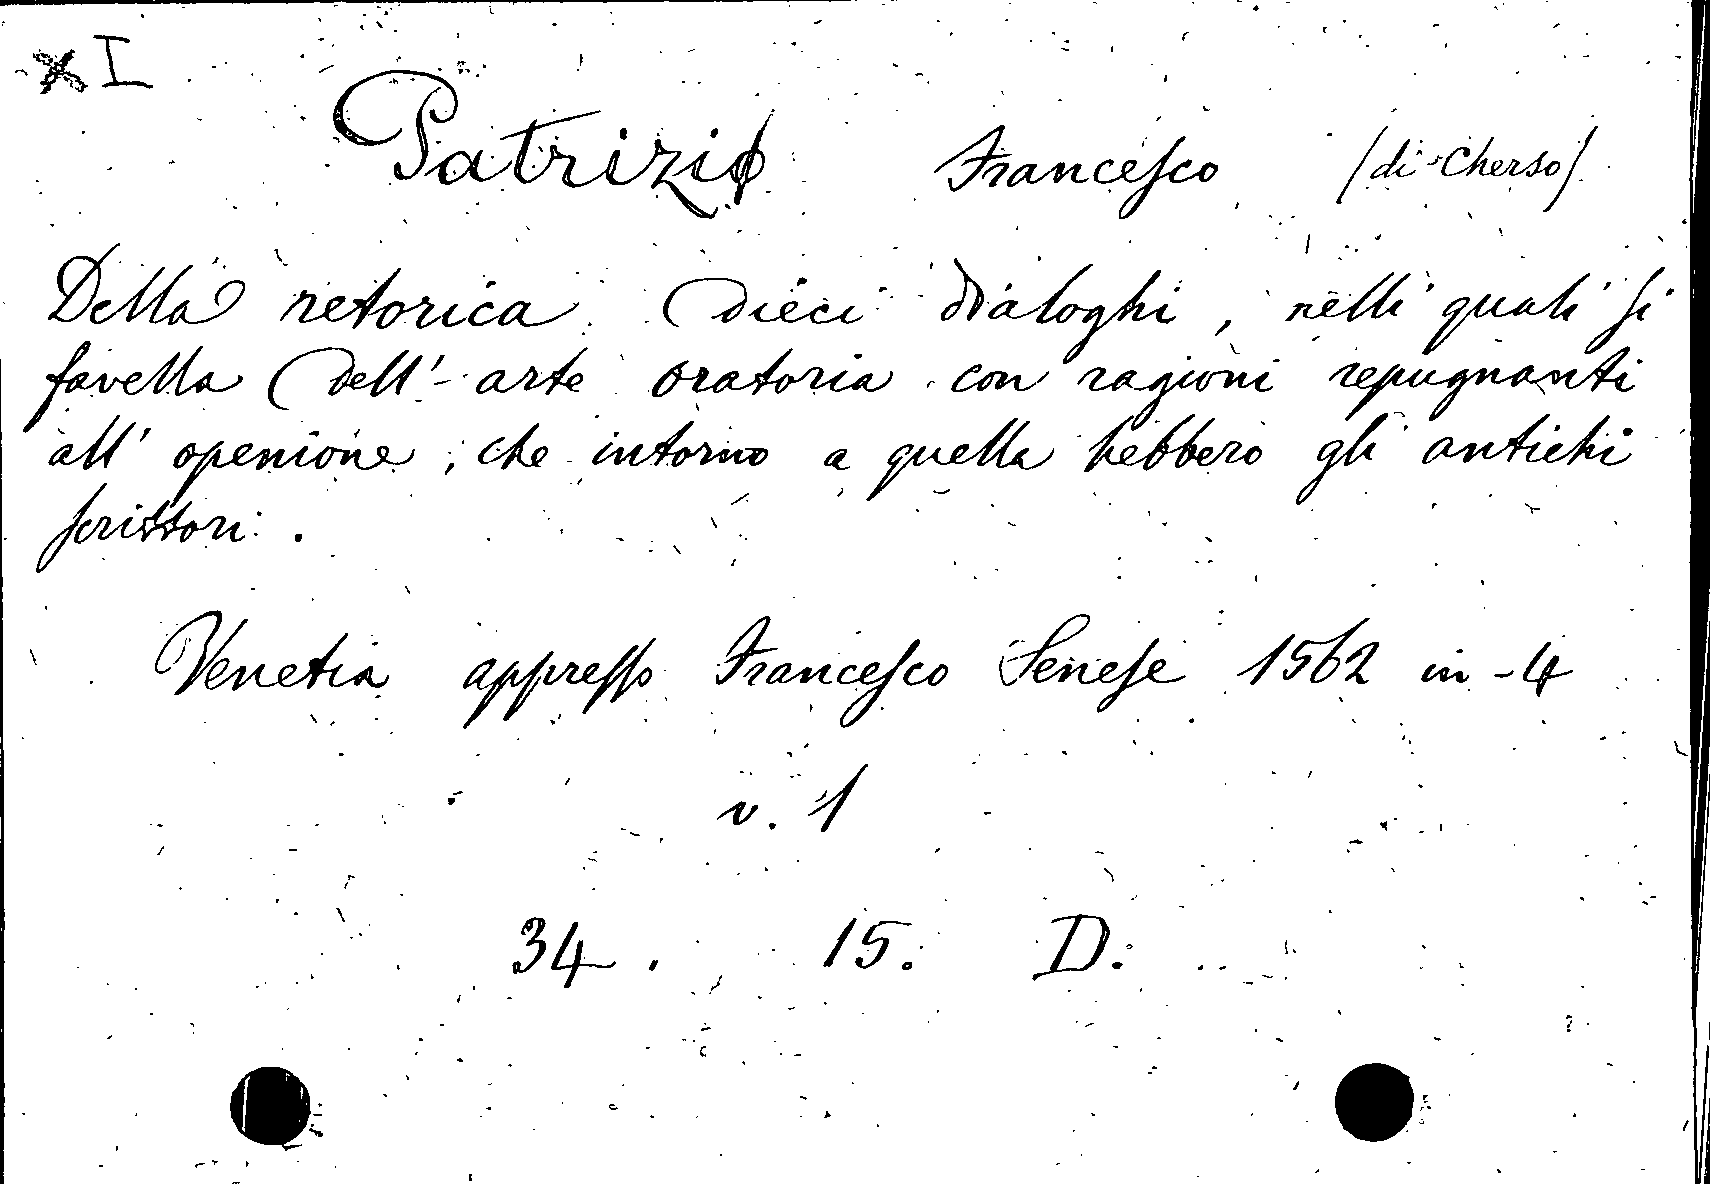 x I
Patrizi Francesco (di Cherso)
Della retorica dieci dialoghi, nelli quali si
favella dell'arte oratoria con ragioni repugnanti
all' openione, che intorno a quella hebbero gli antichi
scrittori.
Venetia appresso Francesco Senese 1562 in-4
v. 1
34. 15. D.